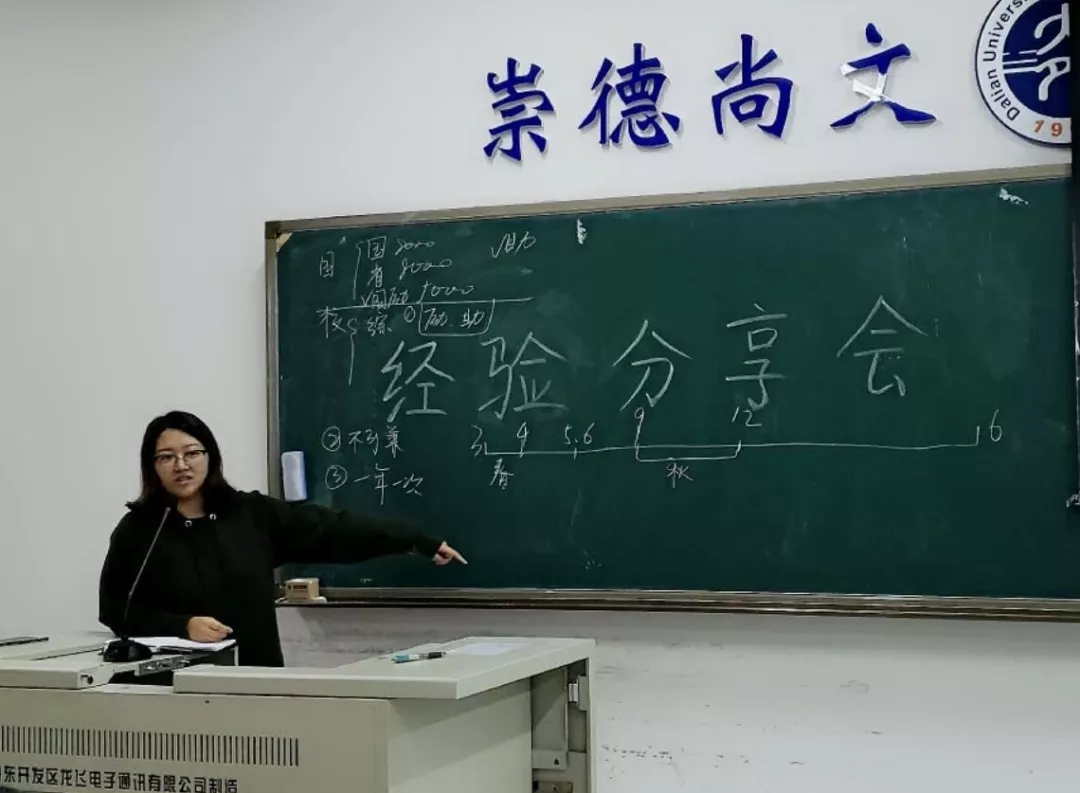 崇德尚文
Dalian Univers
国 国 8000
省 8000
√国励 5000
√助
校 综 ① 励、助
经验分享会
② 不可兼
③ 一年一次
3 4 5.6 9 12 6
春 秋
东开发区龙飞电子通讯有限公司制造